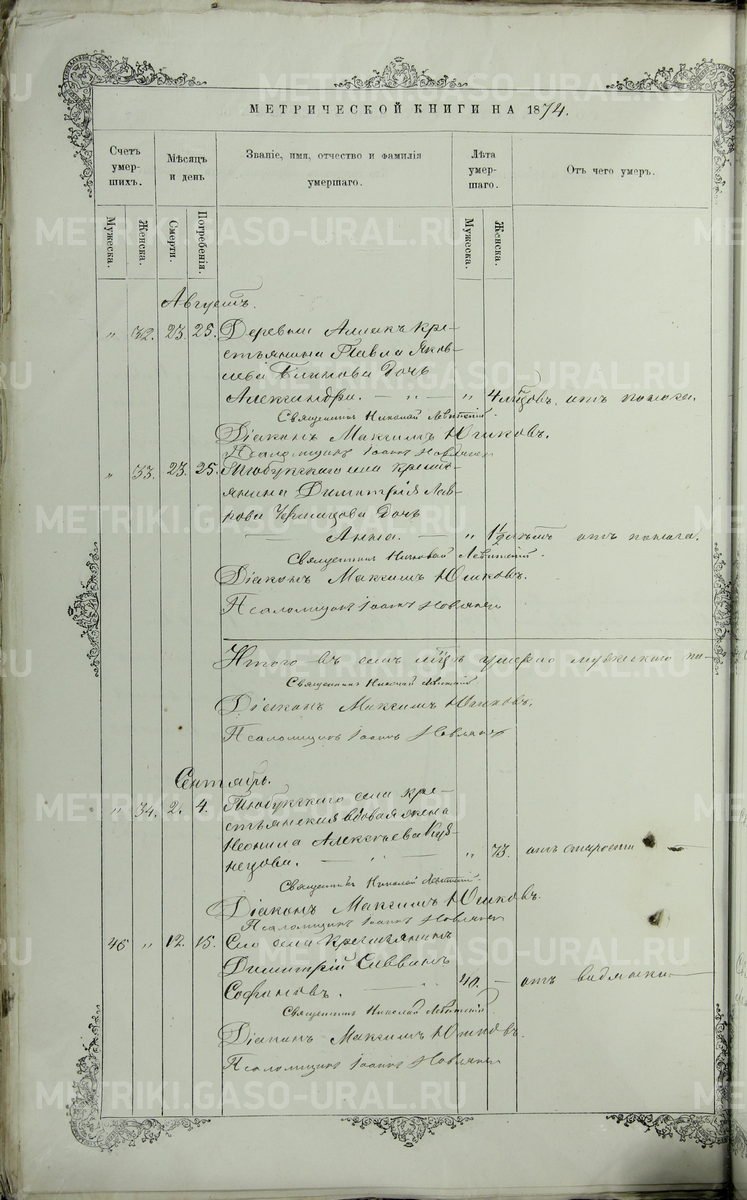 МЕТРИЧЕСКОЙ КНИГИ НА 1874.
Счетъ умер-шихъ.
Мѣсяцъ и день
Званіе, имя, отчество и фамилія умершаго.
Лѣта умер-шаго.
Отъ чего умеръ.
Мужеска. Женска. Смерти. Погребенія. Мужеска. Женска.
Августъ.
" 32. 23. 25. Деревни Аллакъ кре-
стьянина Павла Яков-
лева дочь
Александра. — " — " 4 мѣсяцовъ. отъ поноса.
Священникъ Николай Левитскій.
Діаконъ Максимъ Юшковъ.
Псаломщикъ Іоаннъ
" 33. 23. 25. Тюбукскаго села кресть-
янина Димитрія
дочь
Анна. — " 1½ лѣтъ отъ поноса.
Священникъ Николай Левитскій.
Діаконъ Максимъ Юшковъ.
Псаломщикъ Іоаннъ
Итого въ семъ мѣсяцѣ умерло мужескаго по-
Священникъ Николай Левитскій
Діаконъ Максимъ Юшковъ.
Псаломщикъ Іоаннъ
Сентябрь.
" 34. 2. 4. Тюбукскаго села кре-
стьянская вдовая жена
Неонила Алексѣева Куз-
нецова. — " — " 73. отъ старости —
Священникъ Николай Левитскій.
Діаконъ Максимъ Юшковъ.
Псаломщикъ Іоаннъ
46 " 12. 15. Сего села крестьянинъ
Димитрій Саввинъ
Софоновъ. — " 40. — отъ
Священникъ Николай Левитскій
Діаконъ Максимъ Юшковъ.
Псаломщикъ Іоаннъ
METRIKI.GASO-URAL.RU